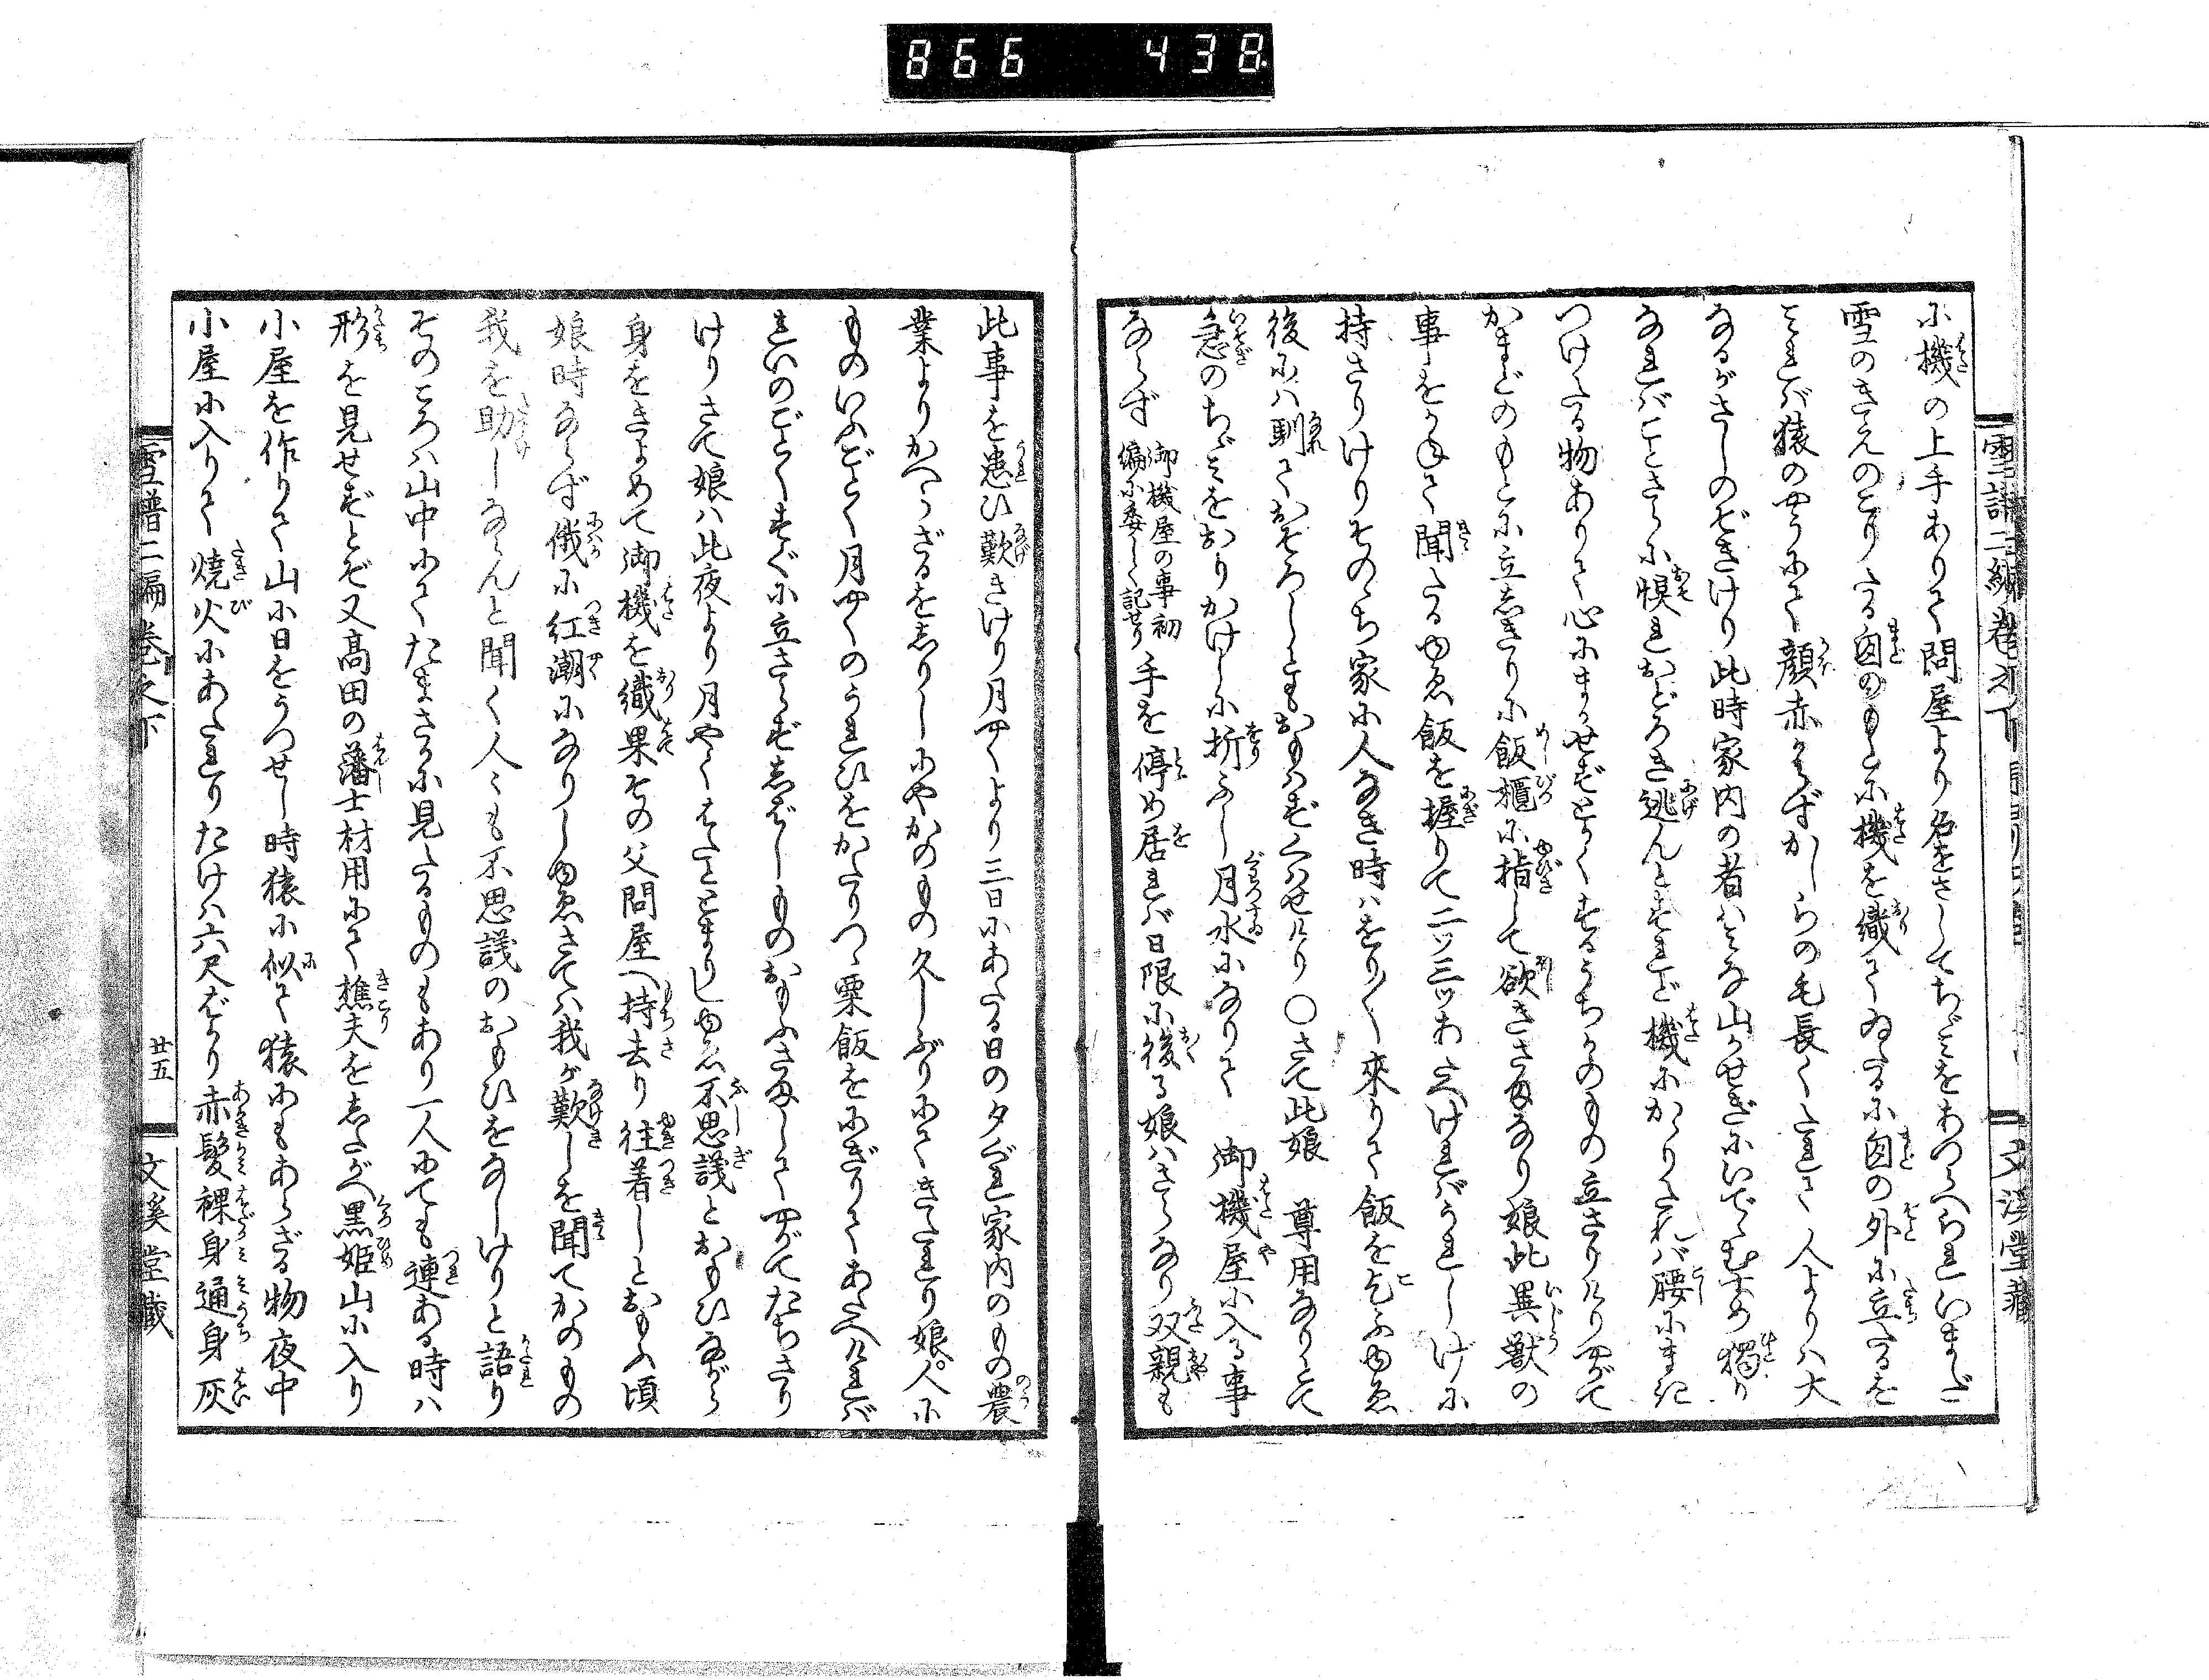 866 438
小機の上手ありて問屋より名をさしてちゞみをあつらへられいまだ
雪のきえのこりたる窗のもとに機を織てゐたるに窗の外に立たるを
みれば猿のやうにて顔赤からずかしらの毛長くたれて人よりハ大
なるがさしのぞきけり此時家内の者ハみな山かせぎにいでゝむすめ獨り
なればことさらに惧れおどろき逃んとすれど機にかゝりたれバ腰にまき
つけたる物ありて心にまかせずとかくするうちかのもの立さりけりやがて
かまどのもとに立しきりに飯櫃に指して欲きさまなり娘此異獣の
事をかねて聞たるゆゑ飯を握りて二ツ三ツあたへけれバうれしげに
持さりけりそのゝち家に人なき時ハをり〳〵來りて飯を乞ふゆゑ
後にハ馴ておそろしともおもはずくはせけり〇さて此娘　尊用なりとて
急のちゞみをおりかけしに折ふし月水になりて　御機屋に入る事
ならず 御機屋の事初編に委しく記せり 手を停め居れバ日限に後る娘ハさらなり双親も
雪譜二編卷之下
文溪堂藏
此事を患ひ歎きけり月やくより三日にあたる日の夕ぐれ家内のもの農
業よりかへらざるをしりしにやかのもの久しぶりにてきたれり娘人に
ものいふごとく月やくのうれひをかたりつゝ粟飯をにぎりてあたへけれバ
れいのごとくすぐに立さらずしばしものおもふさまにてやがてたちさり
けりさて娘ハ此夜より月やくはたととまりしゆゑ不思議とおもひながら
身をきよめて御機を織果その父問屋へ持去り往着しとおもふ頃
娘時ならず俄に紅潮になりしゆゑさてハ我が歎しを聞てかのもの
我を助しならんと聞く人々も不思議のおもひをなしけりと語り
そのころハ山中にてたまさかに見たるものもあり一人にても連ある時ハ
形を見せずとぞ又高田の藩士材用にて樵夫をしたがへ黒姫山に入り
小屋を作りて山に日をうつせし時猿に似て猿にもあらざる物夜中
小屋に入りて焼火にあたれりたけハ六尺ばかり赤髪裸身通身灰
雪譜二編卷之下
廿五
文溪堂藏